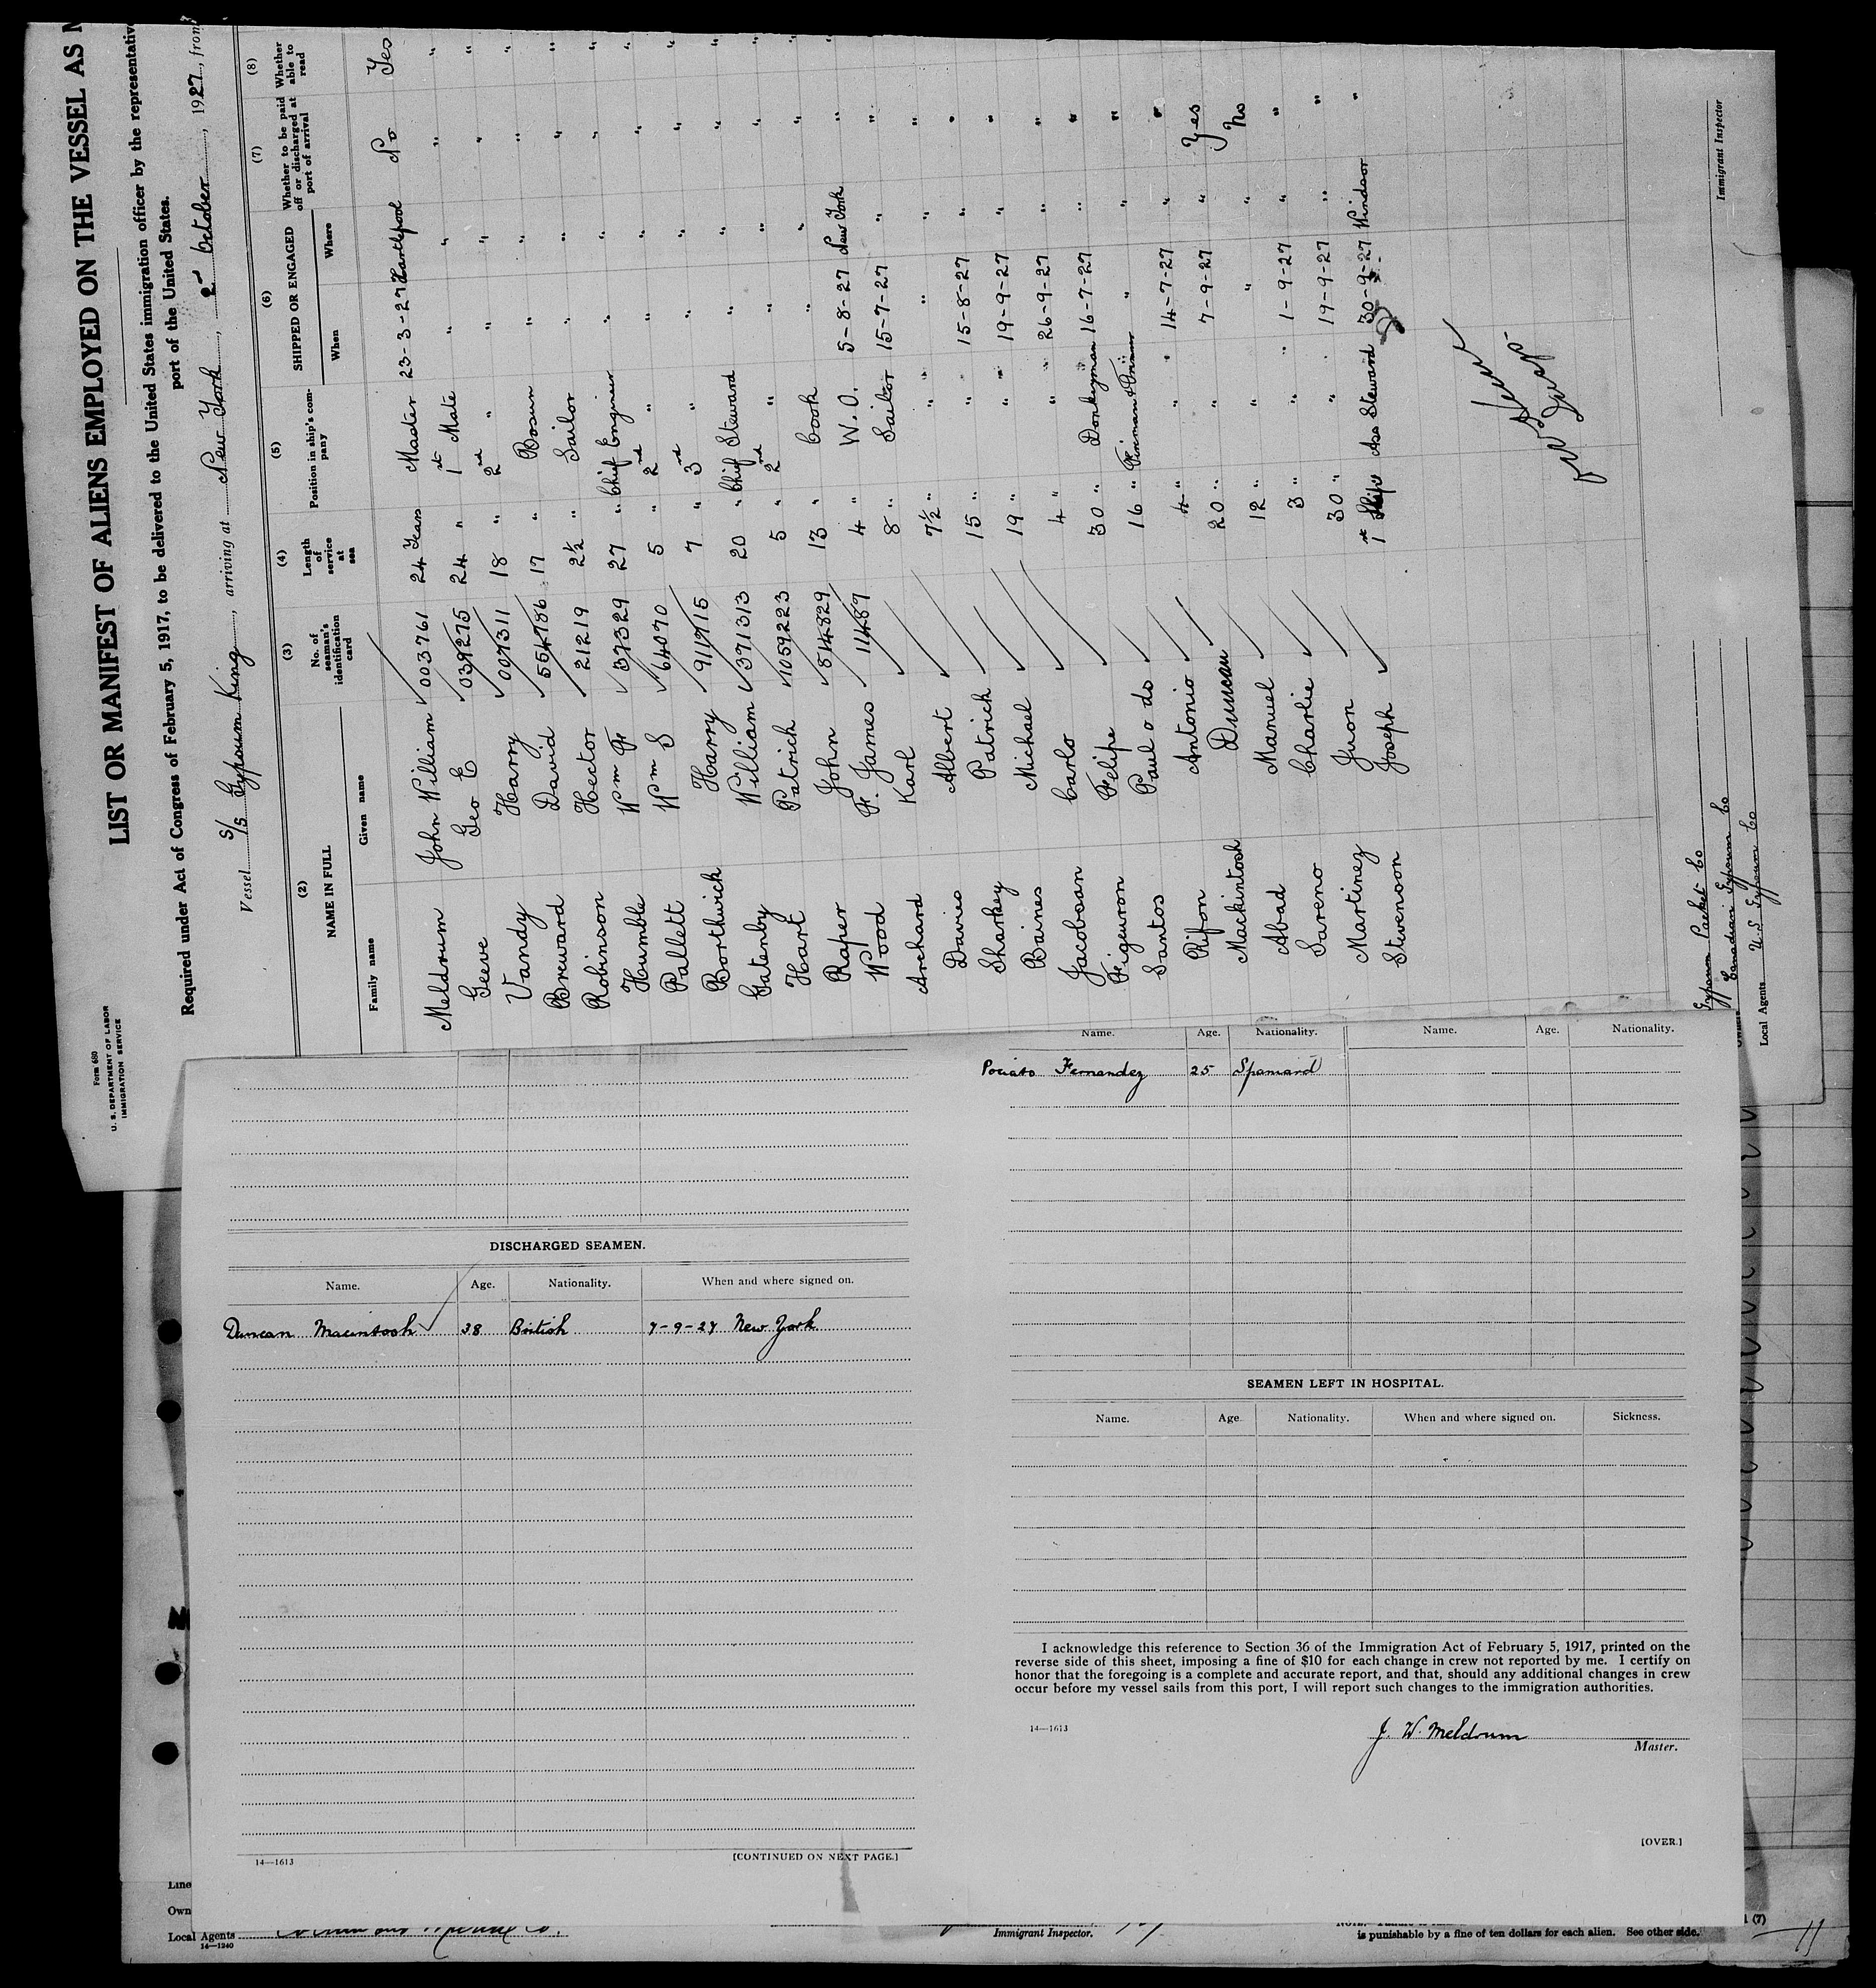 Form 680
U. S. DEPARTMENT OF LABOR
IMMIGRATION SERVICE
LIST OR MANIFEST OF ALIENS EMPLOYED ON THE VESSEL AS
Required under Act of Congress of February 5, 1917, to be delivered to the United States immigration officer by the representative
port of the United States.
Vessel S/S Gypsum King, arriving at New York, 2nd October, 1927, from
(2) (3) (4) (5) (6) (7) (8)
NAME IN FULL No. of seaman's identification card Length of service at sea Position in ship's company SHIPPED OR ENGAGED Whether to be paid off or discharged at port of arrival Whether able to read
Family name Given name When Where
Meldrum John William 003761 24 Years Master 23-3-27 Hartlepool No Yes
Geeve Geo E 039275 24 " 1st Mate " " " "
Vandy Harry 007311 18 " 2nd " " " " "
Breward David 554786 17 " Bosun " " " "
Robinson Hector 21219 2½ " Sailor " " " "
Humble Wm F 37329 27 " Chief Engineer " " " "
Pallett Wm S 64070 5 " 2nd " " " " "
Borthwick Harry 911715 7 " 3rd " " " " "
Gatenby William 371313 20 " Chief Steward " " " "
Hart Patrick 1059223 5 " 2nd " " " " "
Raper John 814829 13 " Cook " " " "
Wood F. James 11489 4 " W.O. 5-8-27 New York "
Archard Karl 8 " Sailor 15-7-27 " "
Davies Albert 7½ " " " " "
Sharkey Patrick 15 " " 15-8-27 " "
Baines Michael 19 " " 19-9-27 " "
Jacobsan Carlo 4 " " 26-9-27 " "
Figeuron Felipe 30 " Donkeyman 16-7-27 " "
Santos Paul o do 16 " Fireman & Trimmer " " "
Rifon Antonio 4 " " 14-7-27 " "
Mackintosh Duncan 20 " " 7-9-27 " Yes
Abad Manuel 12 " " " " No
Sareno Charlie 3 " " 1-9-27 " "
Martinez Juon 30 " " 19-9-27 " "
Stevenson Joseph 1st Ship Ass Steward 30-9-27 Windsor "
Gypsum Packet Co
Canadian Gypsum Co
Local Agents U.S Gypsum Co
Immigrant Inspector
DISCHARGED SEAMEN.
Name. Age. Nationality. When and where signed on.
Duncan Macintosh 38 British 7-9-27 New York
14—1613 [CONTINUED ON NEXT PAGE.]
Name. Age. Nationality. Name. Age. Nationality.
Fernandez 25 Spaniard
SEAMEN LEFT IN HOSPITAL.
Name. Age. Nationality. When and where signed on. Sickness.
I acknowledge this reference to Section 36 of the Immigration Act of February 5, 1917, printed on the
reverse side of this sheet, imposing a fine of $10 for each change in crew not reported by me. I certify on
honor that the foregoing is a complete and accurate report, and that, should any additional changes in crew
occur before my vessel sails from this port, I will report such changes to the immigration authorities.
14—1613
J. W. Meldrum
Master.
[OVER.]
Line
Own
Local Agents
14—1240
Immigrant Inspector.
is punishable by a fine of ten dollars for each alien. See other side.
(7)
11